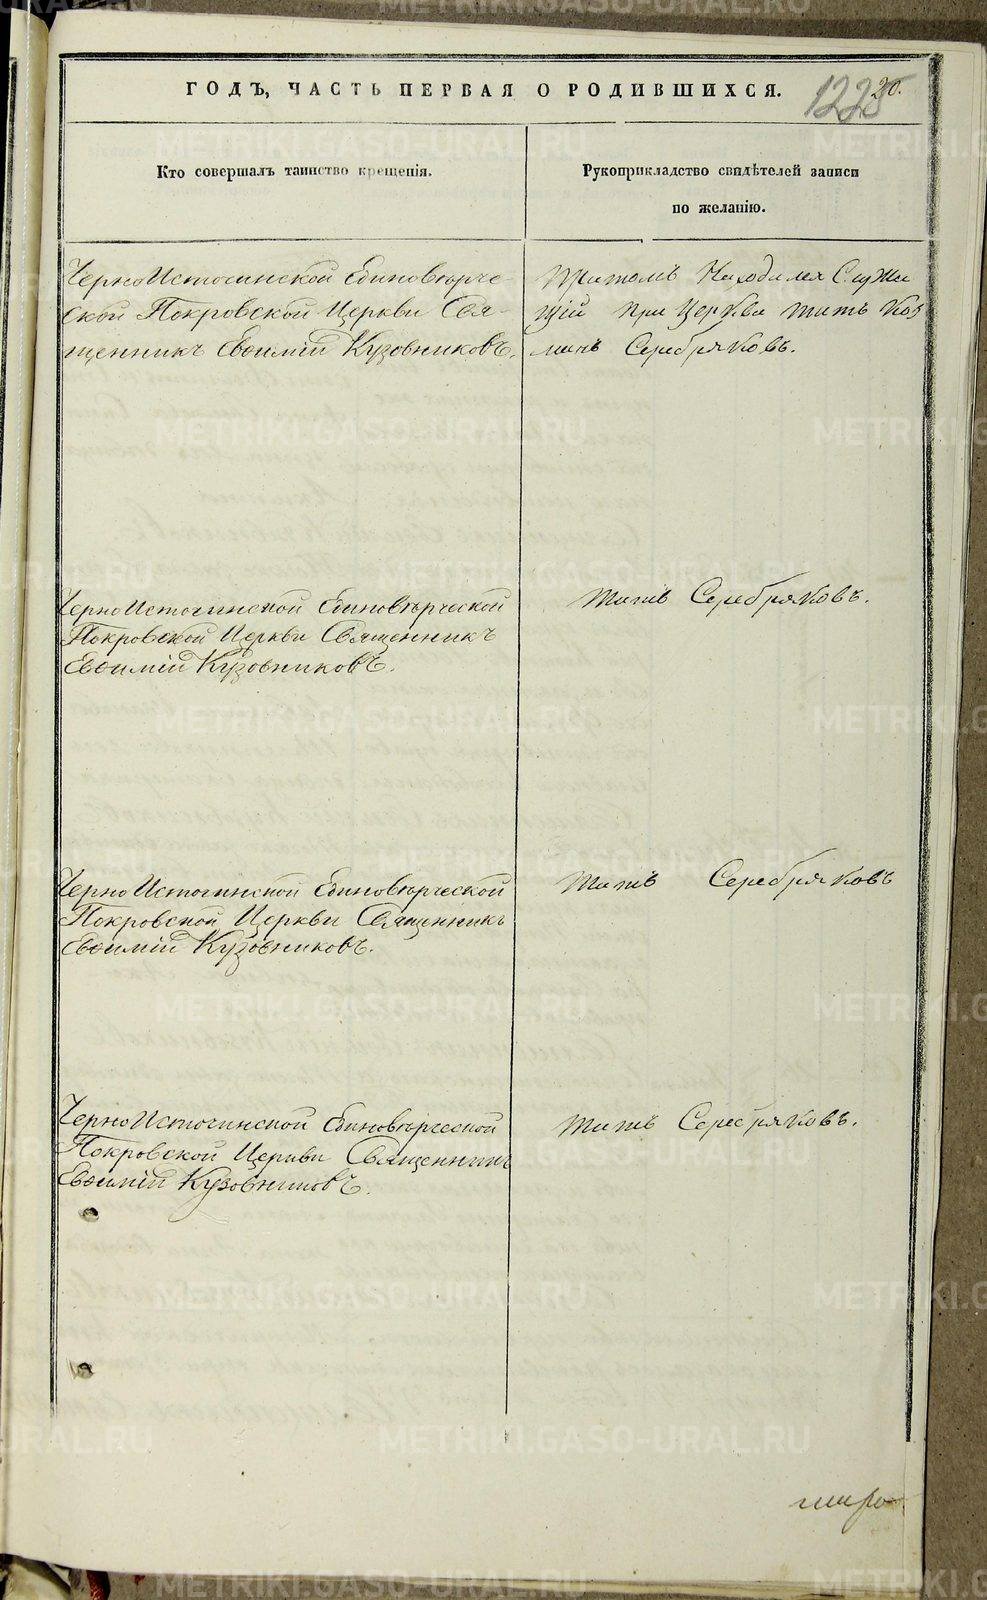 METRIKI.GASO-URAL.RU
ГОДЪ, ЧАСТЬ ПЕРВАЯ О РОДИВШИХСЯ.
1225
20.
Кто совершалъ таинство крещенія.
Рукоприкладство свидѣтелей записи
по желанію.
ЧерноИсточинской Единовѣрче-
ской Покровской Церкви Свя-
щенникъ Евѳимій Кузовниковъ.
Находился Служа
щій при Церкви Титъ Коз
минъ Серебряковъ.
ЧерноИсточинской Единовѣрческой
Покровской Церкви Священникъ
Евѳимій Кузовниковъ.
Титъ Серебряковъ.
ЧерноИсточинской Единовѣрческой
Покровской Церкви Священникъ
Евѳимій Кузовниковъ.
Титъ Серебряковъ
ЧерноИсточинской Единовѣрческой
Покровской Церкви Священникъ
Евѳимій Кузовниковъ.
Титъ Серебряковъ.